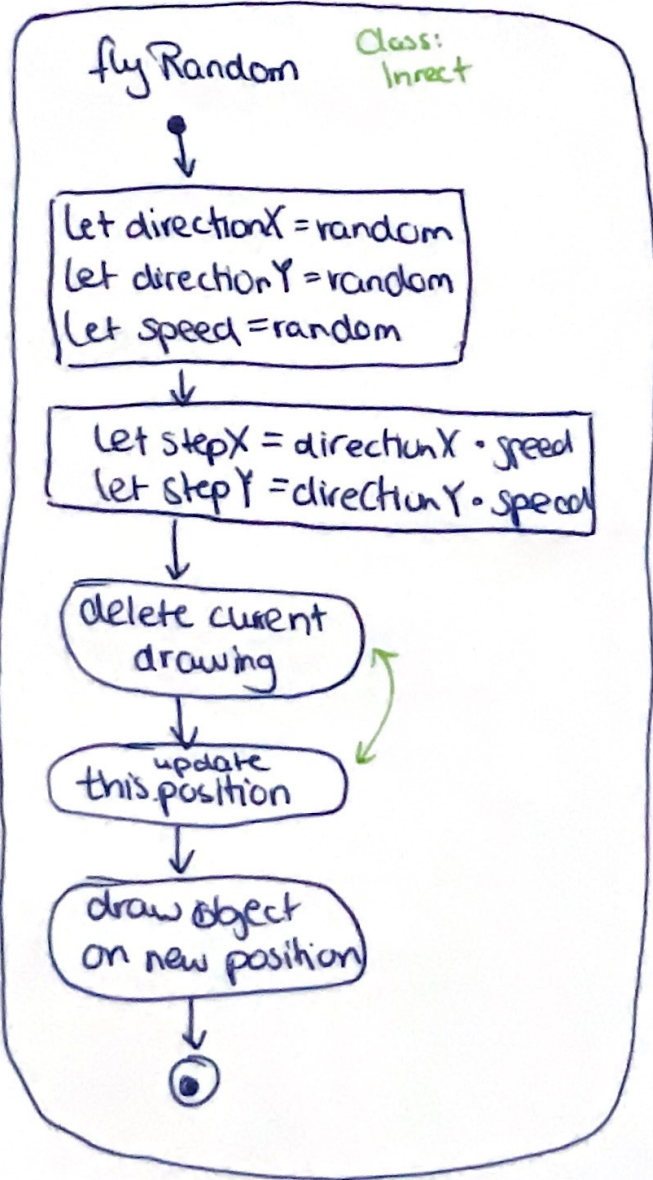 flyRandom
Class:
Insect
let directionX = random
let directionY = random
let speed = random
let stepX = directionX • speed
let stepY = directionY • speed
delete current
drawing
update
this.position
draw object
on new position